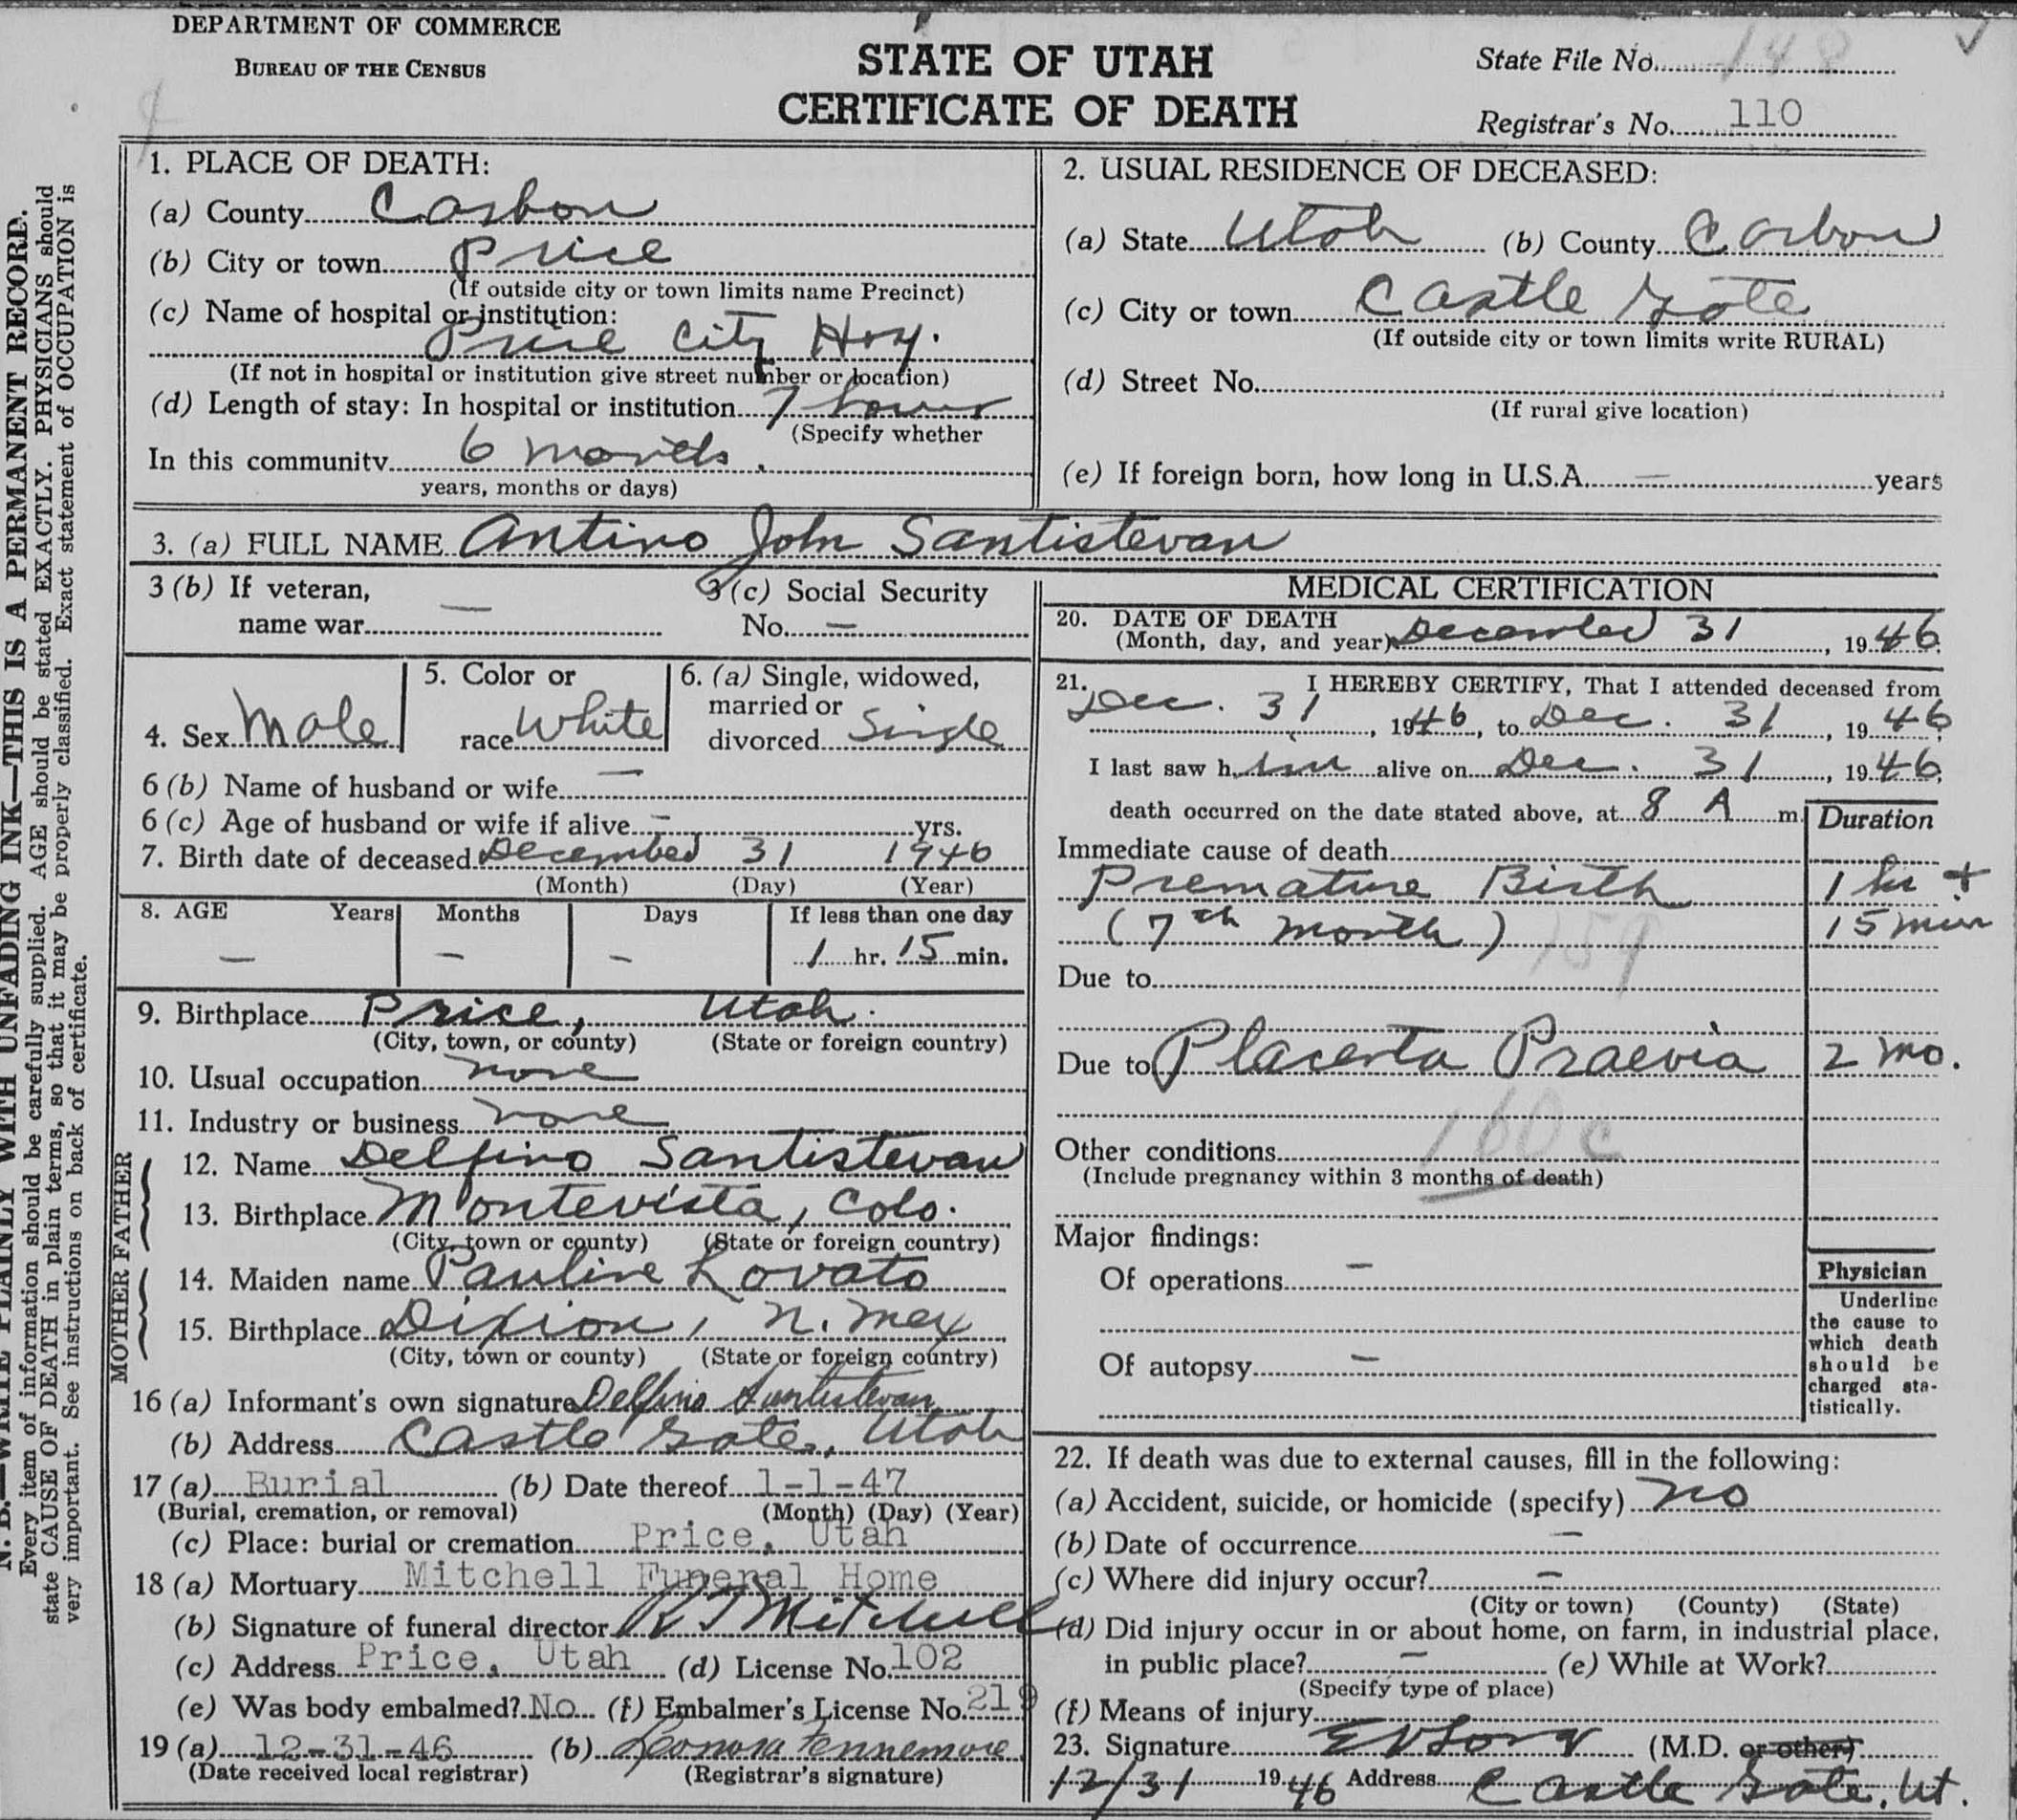 DEPARTMENT OF COMMERCE
BUREAU OF THE CENSUS
STATE OF UTAH
CERTIFICATE OF DEATH
State File No. 148
Registrar's No. 110
N. B.—WRITE PLAINLY WITH UNFADING INK—THIS IS A PERMANENT RECORD.
Every item of information should be carefully supplied. AGE should be stated EXACTLY. PHYSICIANS should
state CAUSE OF DEATH in plain terms, so that it may be properly classified. Exact statement of OCCUPATION is
very important. See instructions on back of certificate.
1. PLACE OF DEATH:
(a) County Carbon
(b) City or town Price
(If outside city or town limits name Precinct)
(c) Name of hospital or institution:
Price City Hosp.
(If not in hospital or institution give street number or location)
(d) Length of stay: In hospital or institution 7 hours
(Specify whether
In this community 6 months.
years, months or days)
2. USUAL RESIDENCE OF DECEASED:
(a) State Utah (b) County Carbon
(c) City or town Castle Gate
(If outside city or town limits write RURAL)
(d) Street No.
(If rural give location)
(e) If foreign born, how long in U.S.A. — years
3. (a) FULL NAME Antino John Santistevan
3 (b) If veteran,
name war —
3 (c) Social Security
No. —
4. Sex Male
5. Color or
race White
6. (a) Single, widowed,
married or
divorced Single
6 (b) Name of husband or wife —
6 (c) Age of husband or wife if alive — yrs.
7. Birth date of deceased December 31 1946
(Month) (Day) (Year)
8. AGE Years Months Days If less than one day
— — — 1 hr. 15 min.
9. Birthplace Price, Utah.
(City, town, or county) (State or foreign country)
10. Usual occupation none
11. Industry or business none
FATHER
12. Name Delfino Santistevan
13. Birthplace Montevista, Colo.
(City, town or county) (State or foreign country)
MOTHER
14. Maiden name Pauline Lovato
15. Birthplace Dixion, N. Mex
(City, town or county) (State or foreign country)
16 (a) Informant's own signature Delfino Santistevan
(b) Address Castle Gate, Utah
17 (a) Burial (b) Date thereof 1-1-47
(Burial, cremation, or removal) (Month) (Day) (Year)
(c) Place: burial or cremation Price, Utah
18 (a) Mortuary Mitchell Funeral Home
(b) Signature of funeral director Mitchell
(c) Address Price, Utah (d) License No. 102
(e) Was body embalmed? No (f) Embalmer's License No. 219
19 (a) 12-31-46 (b) Leonora Fennemore
(Date received local registrar) (Registrar's signature)
MEDICAL CERTIFICATION
20. DATE OF DEATH
(Month, day, and year) December 31, 1946
21. I HEREBY CERTIFY, That I attended deceased from
Dec. 31, 1946, to Dec. 31, 1946
I last saw him alive on Dec. 31, 1946,
death occurred on the date stated above, at 8 A m.
Duration
Immediate cause of death
Premature Birth 1 hr +
(7th month) 15 min
159
Due to
Due to Placenta Praevia 2 mo.
160c
Other conditions
(Include pregnancy within 3 months of death)
Major findings:
Of operations —
Of autopsy —
Physician
Underline
the cause to
which death
should be
charged sta-
tistically.
22. If death was due to external causes, fill in the following:
(a) Accident, suicide, or homicide (specify) no
(b) Date of occurrence —
(c) Where did injury occur? —
(City or town) (County) (State)
(d) Did injury occur in or about home, on farm, in industrial place,
in public place? — (e) While at Work?
(Specify type of place)
(f) Means of injury
23. Signature (M.D. or other)
12/31 1946 Address Castle Gate, Ut.